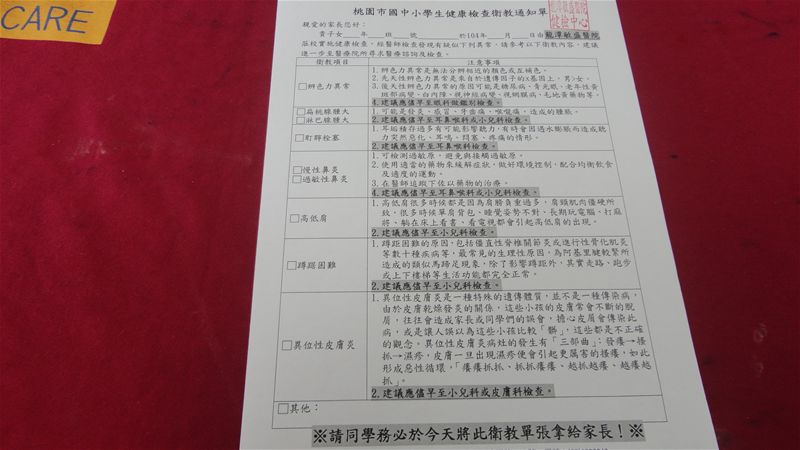 CARE
桃園市國中小學生健康檢查衛教通知單
親愛的家長您好：
貴子女 年 班 號 於104年 月 日由龍潭敏盛醫院
蒞校實施健康檢查，經醫師檢查發現有疑似下列異常，請參考以下衛教內容，建議
進一步至醫療院所尋求醫療諮詢及檢查。
衛教項目 注意事項
□辨色力異常
1.辨色力異常是無法分辨相近的顏色或互補色。
2.先天性辨色力異常是來自於遺傳因子的X基因上，男>女。
3.後天性辨色力異常的原因可能是糖尿病、青光眼、老年性黃
斑部病變、白內障、視神經病變、視網膜病、毛地黃藥物等。
4.建議應儘早至眼科做鑑別檢查。
□扁桃腺腫大
□淋巴腺腫大
1.可能是發炎、感冒、牙齒痛、喉嚨痛，造成的腫脹。
2.建議應儘早至耳鼻喉科或小兒科檢查。
□耵聹栓塞
1.耳垢積存過多有可能影響聽力，有時會因遇水膨脹而造成聽
力突然惡化、耳鳴、悶塞、疼痛的情形。
2.建議應儘早至耳鼻喉科檢查。
□慢性鼻炎
□過敏性鼻炎
1.可檢測過敏原，避免與接觸過敏原。
2.使用適當的藥物來緩解症狀，做好環境控制，配合均衡飲食
及適度的運動。
3.在醫師追蹤下佐以藥物的治療。
4.建議應儘早至耳鼻喉科或小兒科檢查。
□高低肩
1.高低肩很多時都是因為肩膀負重過多，肩頸肌肉僵硬所
致，很多時候單肩背包、睡覺姿勢不對、長期玩電腦、打麻
將、躺在床上看書、看電視都會引起高低肩的出現。
2.建議應儘早至小兒科檢查。
□蹲踞困難
1.蹲踞困難的原因，包括僵直性脊椎關節炎或進行性骨化肌炎
等數十種疾病等，最常見的生理性原因，為阿基里腱較緊所
造成的類似馬蹄足現象，除了影響蹲踞外，其實走路、跑步
或上下樓梯等生活功能都完全正常。
2.建議應儘早至小兒科檢查。
□異位性皮膚炎
1.異位性皮膚炎是一種特殊的遺傳體質，並不是一種傳染病，
由於皮膚乾燥發炎的關係，這些小孩的皮膚常會不斷的脫
屑，往往會造成家長或同學們的誤會，擔心皮屑會傳染此
病，或是讓人誤以為這些小孩比較「髒」，這些都是不正確
的觀念。異位性皮膚炎病灶的發生有「三部曲」：發癢→搔
抓→濕疹，皮膚一旦出現濕疹便會引起更厲害的搔癢，如此
形成惡性循環，「癢癢抓抓、抓抓癢癢、越抓越癢、越癢越
抓」。
2.建議應儘早至小兒科或皮膚科檢查。
□其他：
※請同學務必於今天將此衛教單張拿給家長！※